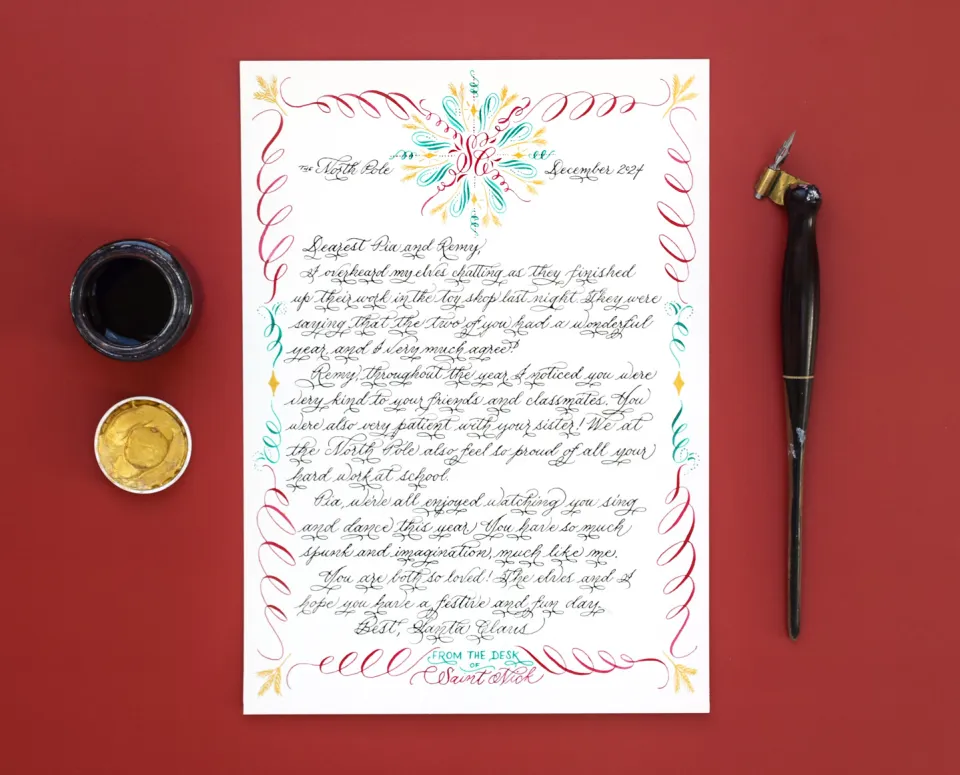 THE North Pole
SC
December 2024
Dearest Pia and Remy,
I overheard my elves chatting as they finished
up their work in the toy shop last night. They were
saying that the two of you had a wonderful
year, and I very much agree!
Remy, throughout the year I noticed you were
very kind to your friends and classmates. You
were also very patient with your sister! We at
the North Pole also feel so proud of all your
hard work at school.
Pia, we've all enjoyed watching you sing
and dance this year. You have so much
spunk and imagination, much like me.
You are both so loved! The elves and I
hope you have a festive and fun day.
Best, Santa Claus
FROM THE DESK
OF
Saint Nick